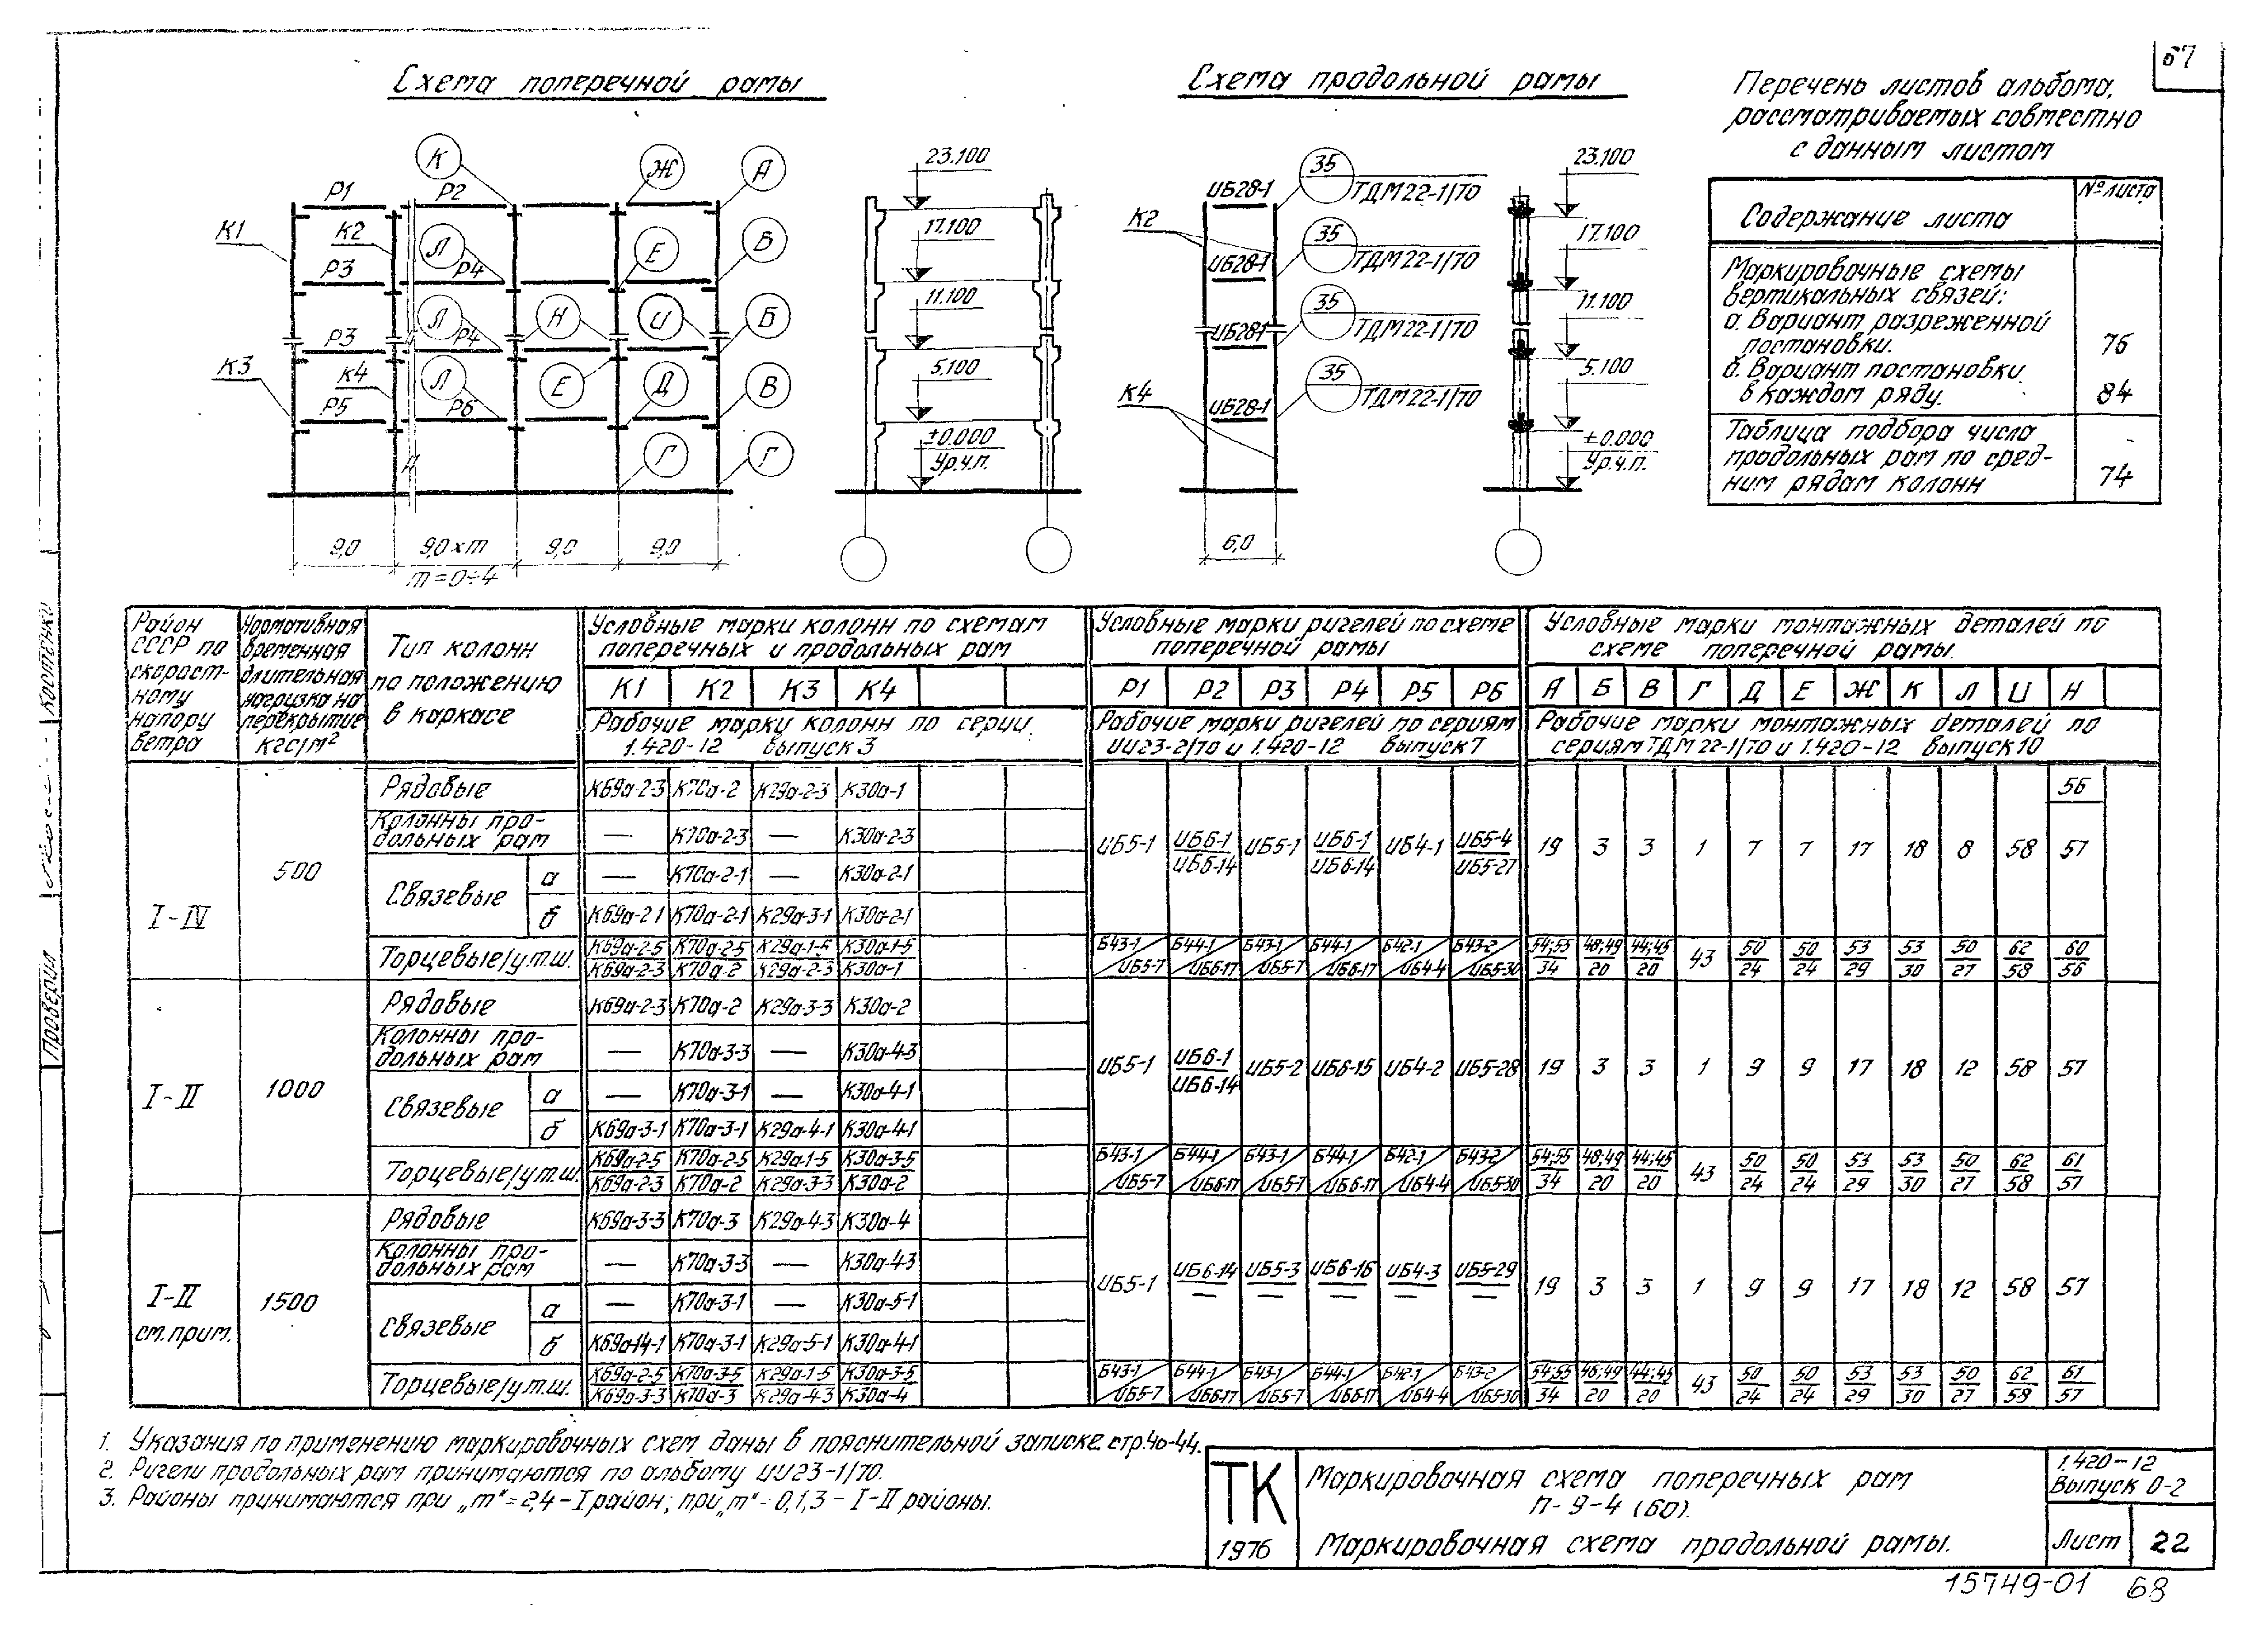 67
Схема поперечной рамы
К Ж А
Р1 Р2
К1 К2 Л Е Б
Р3 Р4
Л Н И Б
Р3 Р4
К3 К4 Л Е Д В
Р5 Р6
Г Г
9,0 9,0×m 9,0 9,0
m=0÷4
23.100
17.100
11.100
5.100
±0.000
Ур.ч.п.
Схема продольной рамы
ИБ28-1 35 ТДМ22-1/70
К2
ИБ28-1 35 ТДМ22-1/70
ИБ28-1 35 ТДМ22-1/70
К4
ИБ28-1 35 ТДМ22-1/70
6,0
23.100
17.100
11.100
5.100
±0.000
Ур.ч.п.
Перечень листов альбома,
рассматриваемых совместно
с данным листом
Содержание листа № листа
Маркировочные схемы
вертикальных связей:
а. Вариант разреженной
постановки. 76
б. Вариант постановки
в каждом ряду. 84
Таблица подбора числа
продольных рам по сред-
ним рядам колонн 74
Район СССР по скорост-ному напору ветра
Нормативная временная длительная нагрузка на перекрытие кгс/м²
Тип колонн по положению в каркасе
Условные марки колонн по схемам поперечных и продольных рам
К1 К2 К3 К4
Рабочие марки колонн по серии 1.420-12 выпуск 3
Условные марки ригелей по схеме поперечной рамы
Р1 Р2 Р3 Р4 Р5 Р6
Рабочие марки ригелей по сериям ИИ23-2/70 и 1.420-12 выпуск 7
Условные марки монтажных деталей по схеме поперечной рамы.
А Б В Г Д Е Ж К Л И Н
Рабочие марки монтажных деталей по сериям ТДМ 22-1/70 и 1.420-12 выпуск 10
I-IV 500
Рядовые К69а-2-3 К70а-2 К29а-2-3 К30а-1 56
Колонны про-дольных рам — К70а-2-3 — К30а-2-3
ИБ5-1 ИБ6-1/ИБ6-14 ИБ5-1 ИБ6-1/ИБ6-14 ИБ4-1 ИБ5-4/ИБ5-27 19 3 3 1 7 7 17 18 8 58 57
Связевые а — К70а-2-1 — К30а-2-1
б К69а-2-1 К70а-2-1 К29а-3-1 К30а-2-1
Торцевые/у.т.ш. К69а-2-5/К69а-2-3 К70а-2-5/К70а-2 К29а-1-5/К29а-2-3 К30а-1-5/К30а-1 Б43-1/ИБ5-7 Б44-1/ИБ6-17 Б43-1/ИБ5-7 Б44-1/ИБ6-17 Б42-1/ИБ4-4 Б43-2/ИБ5-30 54;55/34 48;49/20 44;45/20 43 50/24 50/24 53/29 53/30 50/27 62/58 60/56
I-II 1000
Рядовые К69а-2-3 К70а-2 К29а-3-3 К30а-2
Колонны про-дольных рам — К70а-3-3 — К30а-4-3
ИБ5-1 ИБ6-1/ИБ6-14 ИБ5-2 ИБ6-15 ИБ4-2 ИБ5-28 19 3 3 1 9 9 17 18 12 58 57
Связевые а — К70а-3-1 — К30а-4-1
б К69а-3-1 К70а-3-1 К29а-4-1 К30а-4-1
Торцевые/у.т.ш. К69а-2-5/К69а-2-3 К70а-2-5/К70а-2 К29а-1-5/К29а-3-3 К30а-3-5/К30а-2 Б43-1/ИБ5-7 Б44-1/ИБ6-17 Б43-1/ИБ5-7 Б44-1/ИБ6-17 Б42-1/ИБ4-4 Б43-2/ИБ5-30 54;55/34 48;49/20 44;45/20 43 50/24 50/24 53/29 53/30 50/27 62/58 61/57
I-II см.прим. 1500
Рядовые К69а-3-3 К70а-3 К29а-4-3 К30а-4
Колонны про-дольных рам — К70а-3-3 — К30а-4-3
ИБ5-1 ИБ6-14/— ИБ5-3/— ИБ6-16/— ИБ4-3/— ИБ5-29/— 19 3 3 1 9 9 17 18 12 58 57
Связевые а — К70а-3-1 — К30а-5-1
б К69а-14-1 К70а-3-1 К29а-5-1 К30а-4-1
Торцевые/у.т.ш. К69а-2-5/К69а-3-3 К70а-3-5/К70а-3 К29а-1-5/К29а-4-3 К30а-3-5/К30а-4 Б43-1/ИБ5-7 Б44-1/ИБ6-17 Б43-1/ИБ5-7 Б44-1/ИБ6-17 Б42-1/ИБ4-4 Б43-2/ИБ5-30 54;55/34 48;49/20 44;45/20 43 50/24 50/24 53/29 53/30 50/27 62/58 61/57
1. Указания по применению маркировочных схем даны в пояснительной записке стр.40-44.
2. Ригели продольных рам принимаются по альбому ИИ23-1/70.
3. Районы принимаются при „m"=2,4-I район; при „m"=0,1,3 - I-II районы.
ТК
1976
Маркировочная схема поперечных рам
П-9-4 (60).
Маркировочная схема продольной рамы.
1.420-12
Выпуск 0-2
Лист 22
15749-01 68
Проверил
Костенко